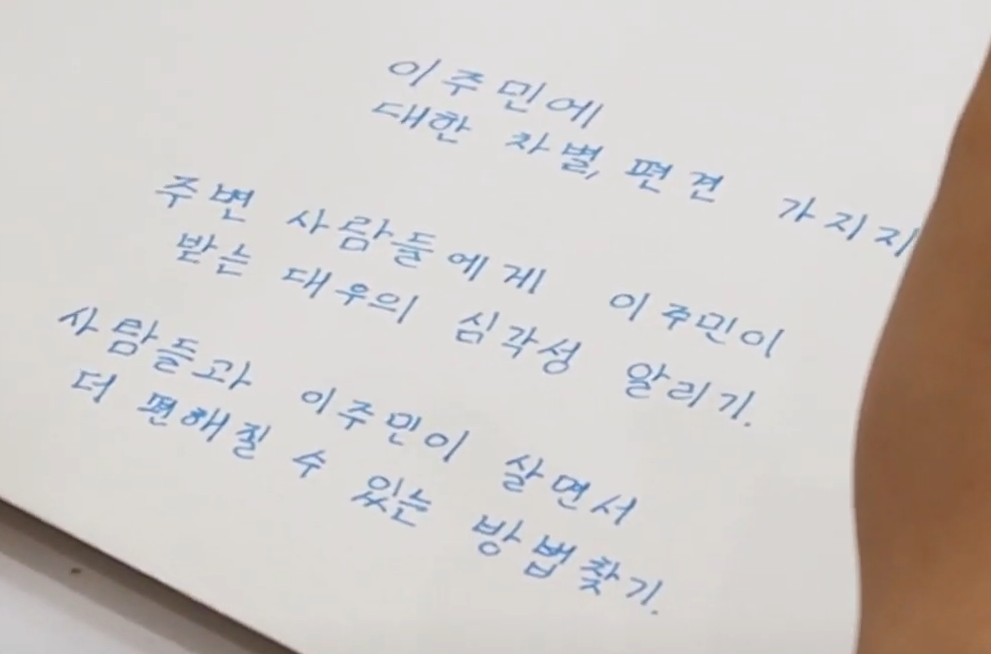 이주민에
대한 차별, 편견 가지지
주변 사람들에게 이주민이
받는 대우의 심각성 알리기.
사람들과 이주민이 살면서
더 편해질 수 있는 방법찾기.